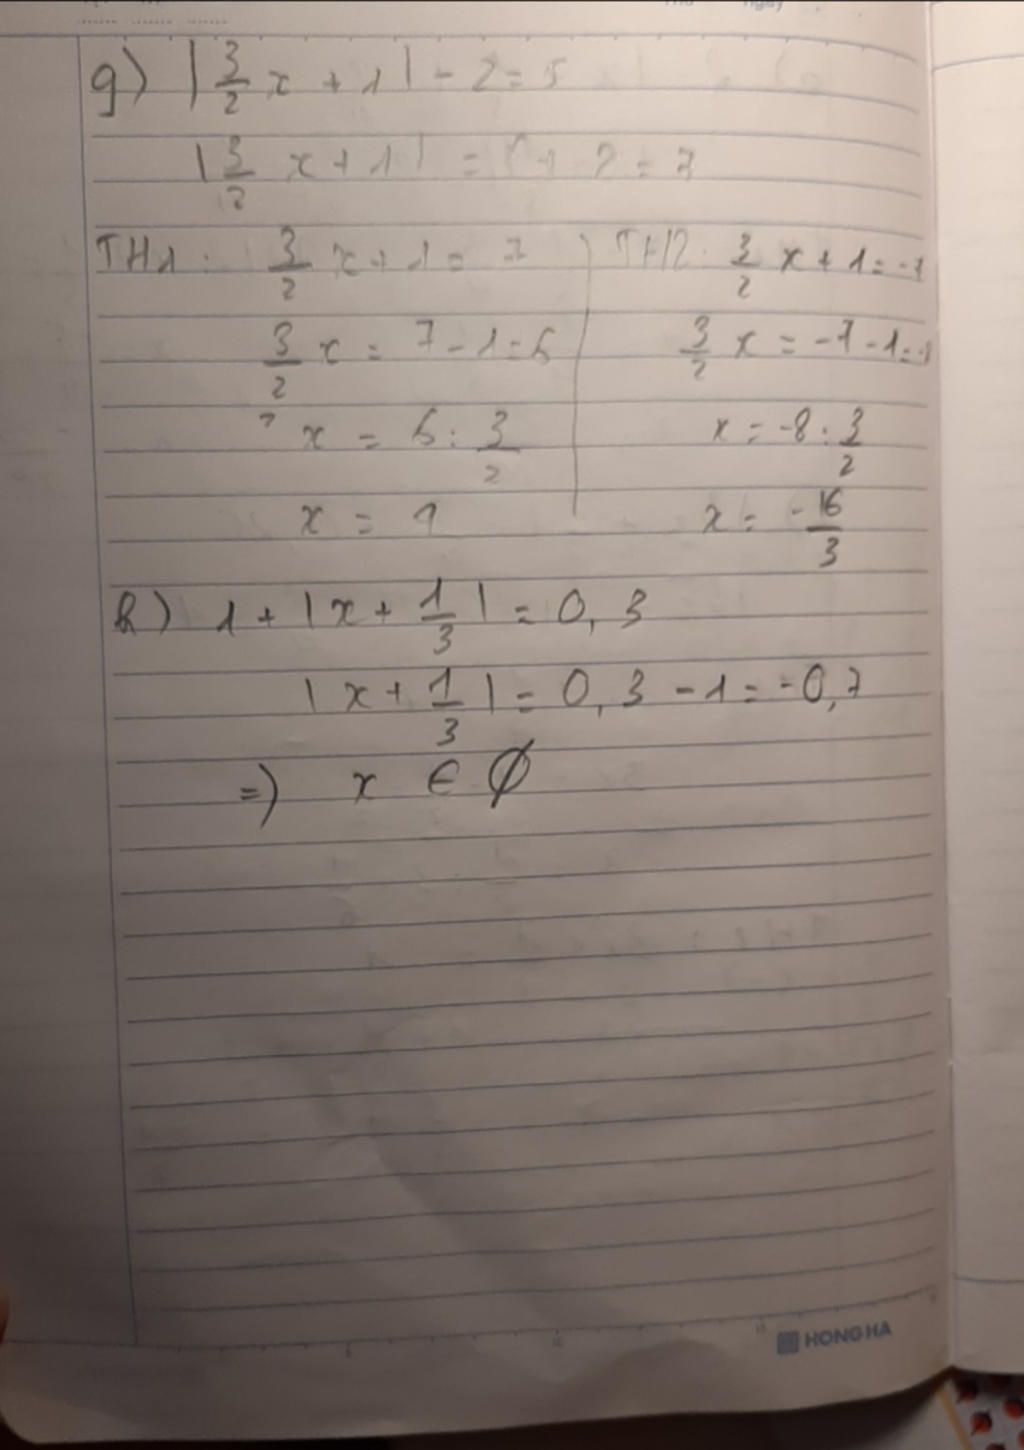 g) |3/2 x + 1| - 2 = 5
|3/2 x + 1| = 5 + 2 = 7
TH1: 3/2 x + 1 = 7
3/2 x = 7 - 1 = 6
x = 6 : 3/2
x = 4
TH2: 3/2 x + 1 = -7
3/2 x = -7 - 1 = -8
x = -8 : 3/2
x = -16/3
h) 1 + |x + 1/3| = 0,3
|x + 1/3| = 0,3 - 1 = -0,7
=> x ∈ ∅
HONG HA